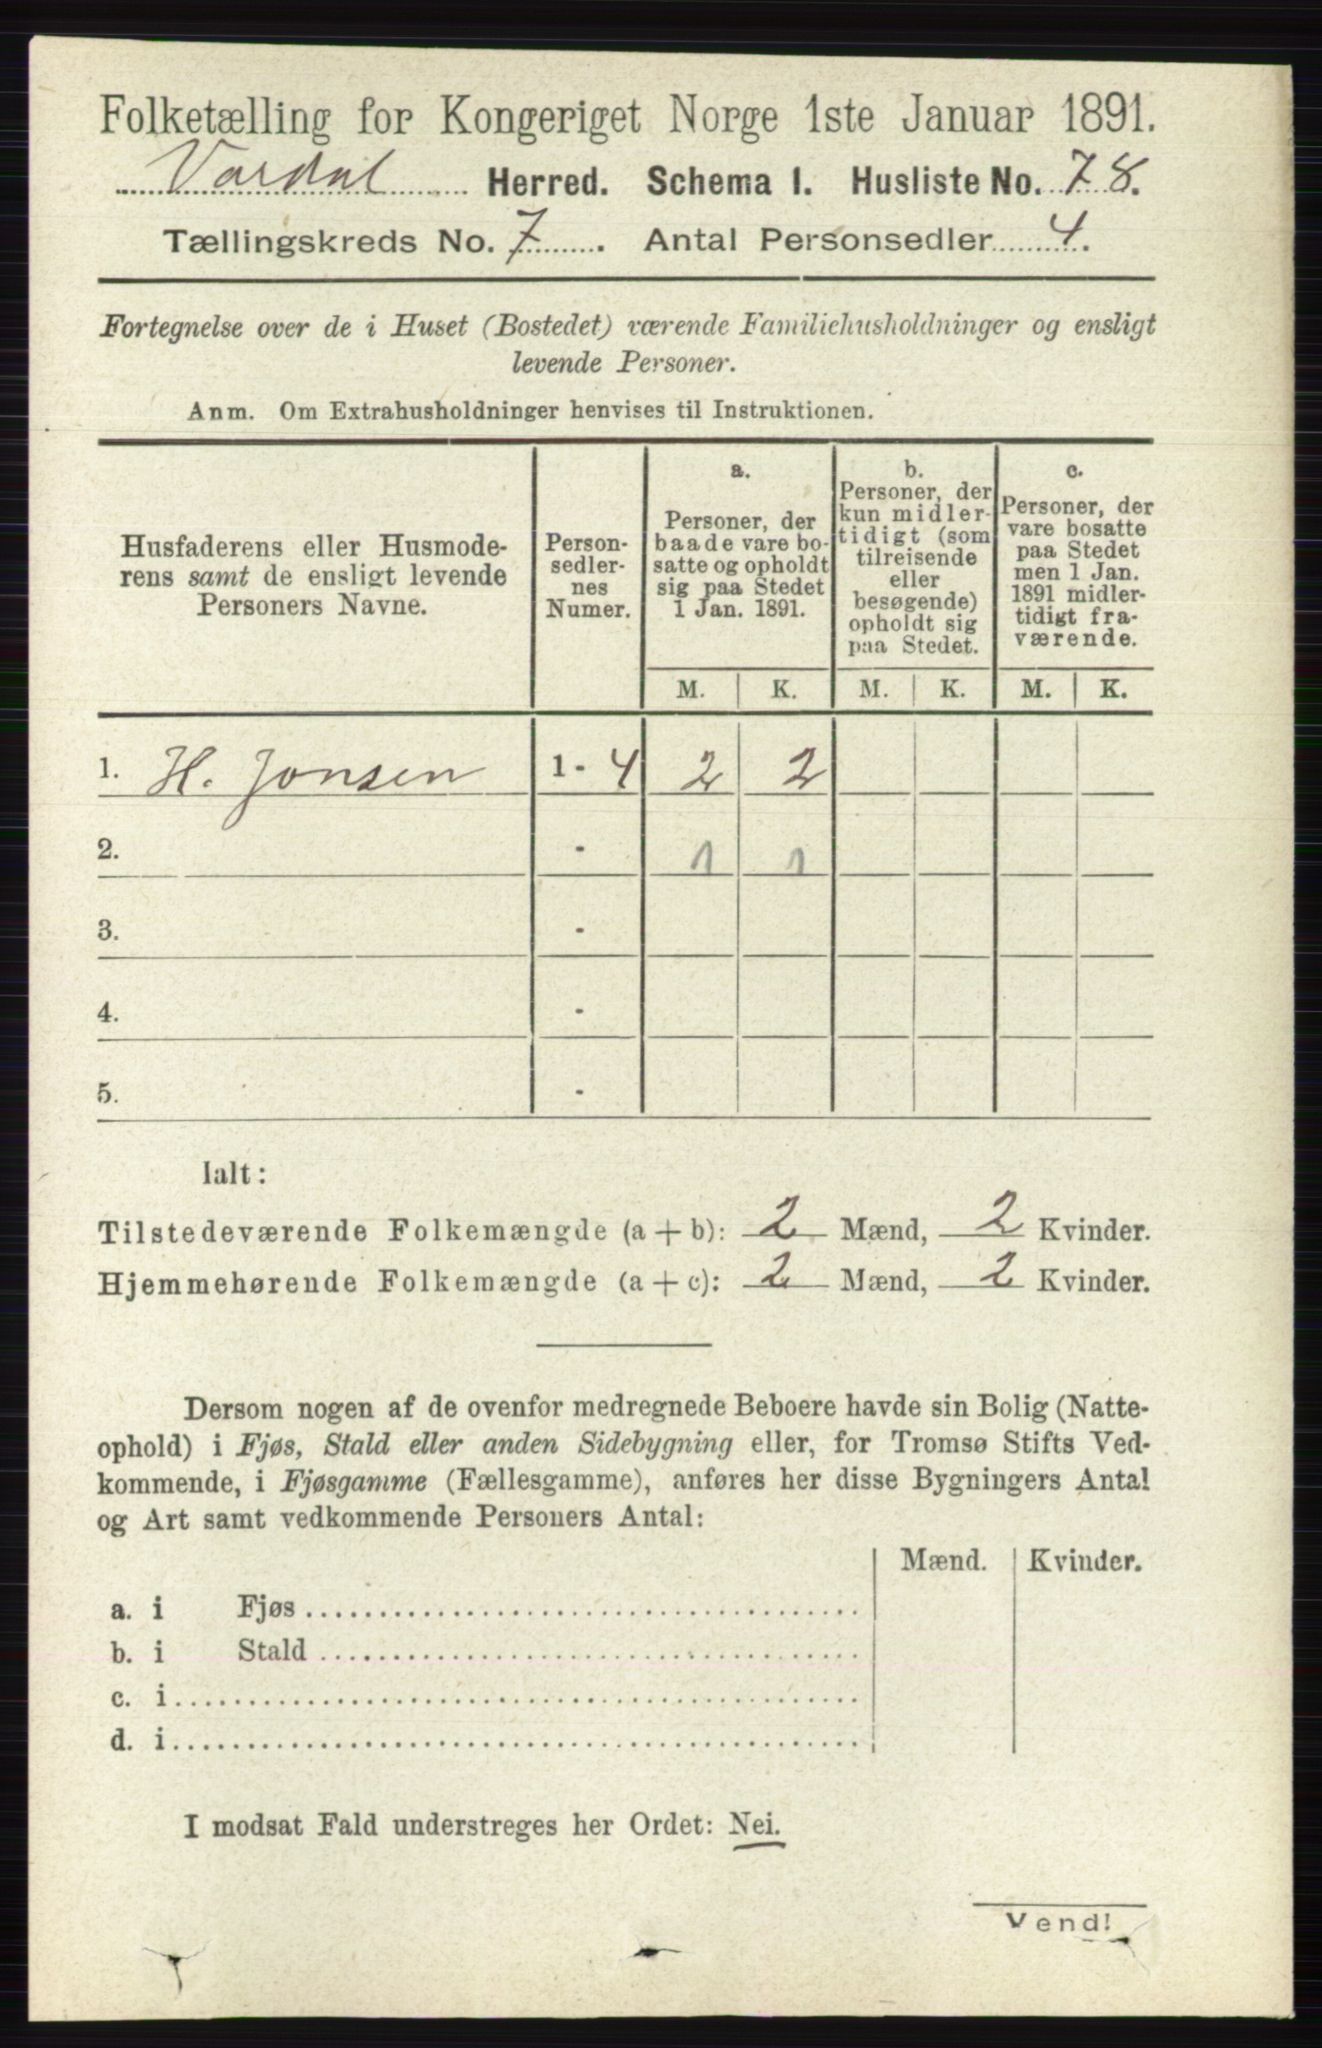 Folketælling for Kongeriget Norge 1ste Januar 1891.
Vardal Herred. Schema 1. Husliste No. 78.
Tællingskreds No. 7. Antal Personsedler 4.
Fortegnelse over de i Huset (Bostedet) værende Familiehusholdninger og ensligt
levende Personer.
Anm. Om Extrahusholdninger henvises til Instruktionen.
Husfaderens eller Husmode-
rens samt de ensligt levende
Personers Navne.
Person-
sedler-
nes
Numer.
a.
Personer, der
baade vare bo-
satte og opholdt
sig paa Stedet
1 Jan. 1891.
b.
Personer, der
kun midler-
tidigt (som
tilreisende
eller
besøgende)
opholdt sig
paa Stedet.
c.
Personer, der
vare bosatte
paa Stedet
men 1 Jan.
1891 midler-
tidigt fra-
værende.
M. K. M. K. M. K.
1. H. Jonsen 1 - 4 2 2
2. - 1 1
3. -
4. -
5. -
Ialt:
Tilstedeværende Folkemængde (a + b): 2 Mænd, 2 Kvinder.
Hjemmehørende Folkemængde (a + c): 2 Mænd, 2 Kvinder.
Dersom nogen af de ovenfor medregnede Beboere havde sin Bolig (Natte-
ophold) i Fjøs, Stald eller anden Sidebygning eller, for Tromsø Stifts Ved-
kommende, i Fjøsgamme (Fællesgamme), anføres her disse Bygningers Antal
og Art samt vedkommende Personers Antal:
Mænd. Kvinder.
a. i Fjøs
b. i Stald
c. i
d. i
I modsat Fald understreges her Ordet: Nei.
Vend!